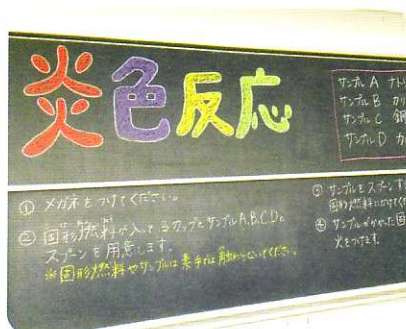 炎色反応
サンプル A ナト
サンプル B カリ
サンプル C 銅
サンプル D カ
① メガネをつけてください。
② 固形燃料が入ってるカップとサンプルA,B,C,Dと
スプーンを用意します。
※固形燃料やサンプルは素手では触わらないでください。
③ サンプルをスプーンで
固形燃料に
④ サンプルがかかった固
火をつけます。